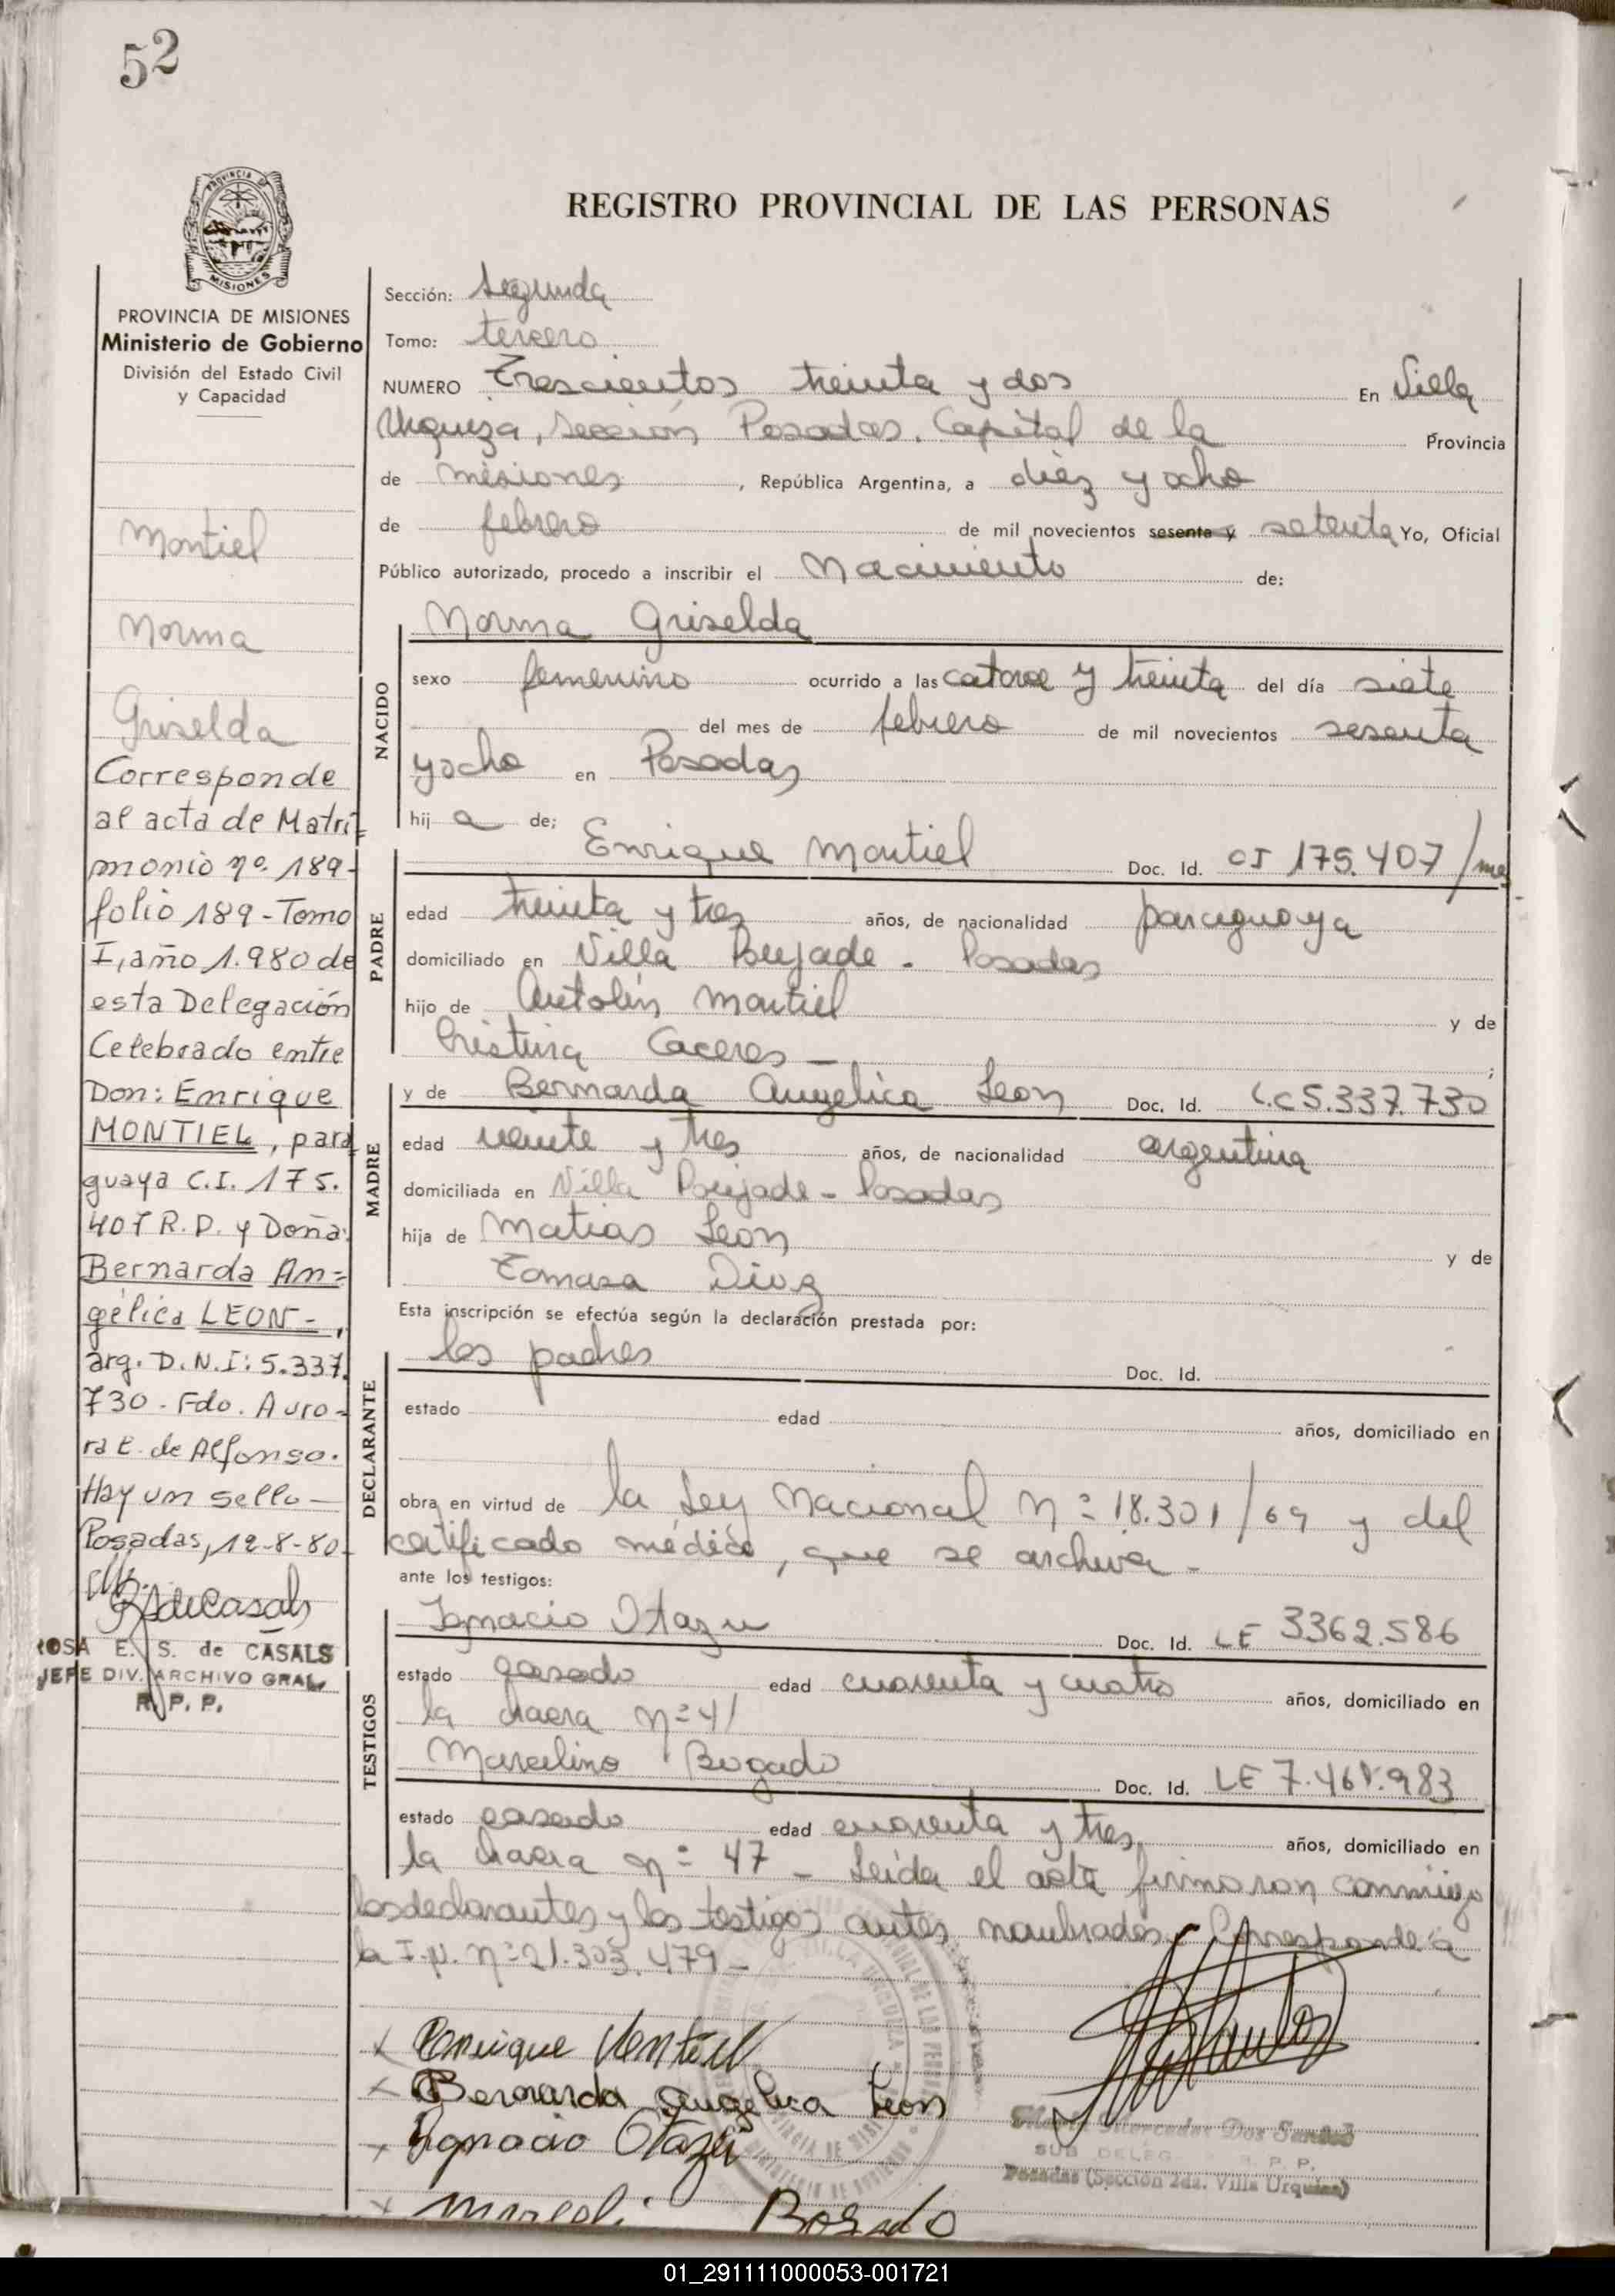 52
PROVINCIA DE
MISIONES
REGISTRO PROVINCIAL DE LAS PERSONAS
PROVINCIA DE MISIONES
Ministerio de Gobierno
División del Estado Civil
y Capacidad
Montiel
Norma
Griselda
Corresponde
al acta de Matri=
monio nº. 189-
folio 189 - Tomo
I, año 1.980 de
esta Delegación
Celebrado entre
Don: Enrique
MONTIEL, para
guaya C.I. 175.
407 R.P. y Doña:
Bernarda An=
gélica LEON-,
arg. D.N.I: 5.337.
730. Fdo. Auro-
ra E. de Alfonso.
Hay un sello-
Posadas, 12-8-80-
ROSA E. S. de CASALS
JEFE DIV. ARCHIVO GRAL.
R. P. P.
Sección: Segunda
Tomo: tercero
NUMERO Trescientos treinta y dos En Villa
Urquiza, Sección Posadas. Capital de la Provincia
de misiones, República Argentina, a diez y ocho
de febrero de mil novecientos sesenta y setenta Yo, Oficial
Público autorizado, procedo a inscribir el Nacimiento de:
NACIDO
Norma Griselda
sexo femenino ocurrido a las catorce y treinta del día siete
del mes de febrero de mil novecientos sesenta
y ocho en Posadas
hij a de;
PADRE
Enrique Montiel Doc. Id. CI 175.407/mes
edad treinta y tres años, de nacionalidad paraguaya
domiciliado en Villa Pujade - Posadas
hijo de Antolín Montiel y de
Cristina Caceres - ;
MADRE
y de Bernarda Angelica Leon Doc. Id. L.C 5.337.730
edad veinte y tres años, de nacionalidad argentina
domiciliada en Villa Pujade - Posadas
hija de Matias Leon y de
Tomasa Diaz
Esta inscripción se efectúa según la declaración prestada por:
DECLARANTE
los padres Doc. Id.
estado edad años, domiciliado en
obra en virtud de la Ley Nacional Nº 18.301/69 y del
certificado médico, que se archiva -
ante los testigos:
TESTIGOS
Ignacio Otazu Doc. Id. LE 3362.586
estado casado edad cuarenta y cuatro años, domiciliado en
la chacra nº 41
Marcelino Bogado Doc. Id. LE 7.461.983
estado casado edad cuarenta y tres, años, domiciliado en
la chacra nº 47 - Leida el acta firmaron conmigo
los declarantes y los testigos antes nombrados. - Corresponde a
la I.N. nº 21.303.479 -
x Enrique Montiel
x Bernarda Angelica Leon
x Ignacio Otazu
x Marceli Bogado
Mercedes Dos Santos
SUB DELEG. R. P. P.
Posadas (Sección 2da. Villa Urquiza)
01_291111000053-001721